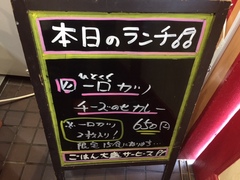 本日のランチ
ひとくち
一口カツ
チーズのせカレー
※一口カツ
2枚入り!
650円
限定15食
ごはん大盛サービス